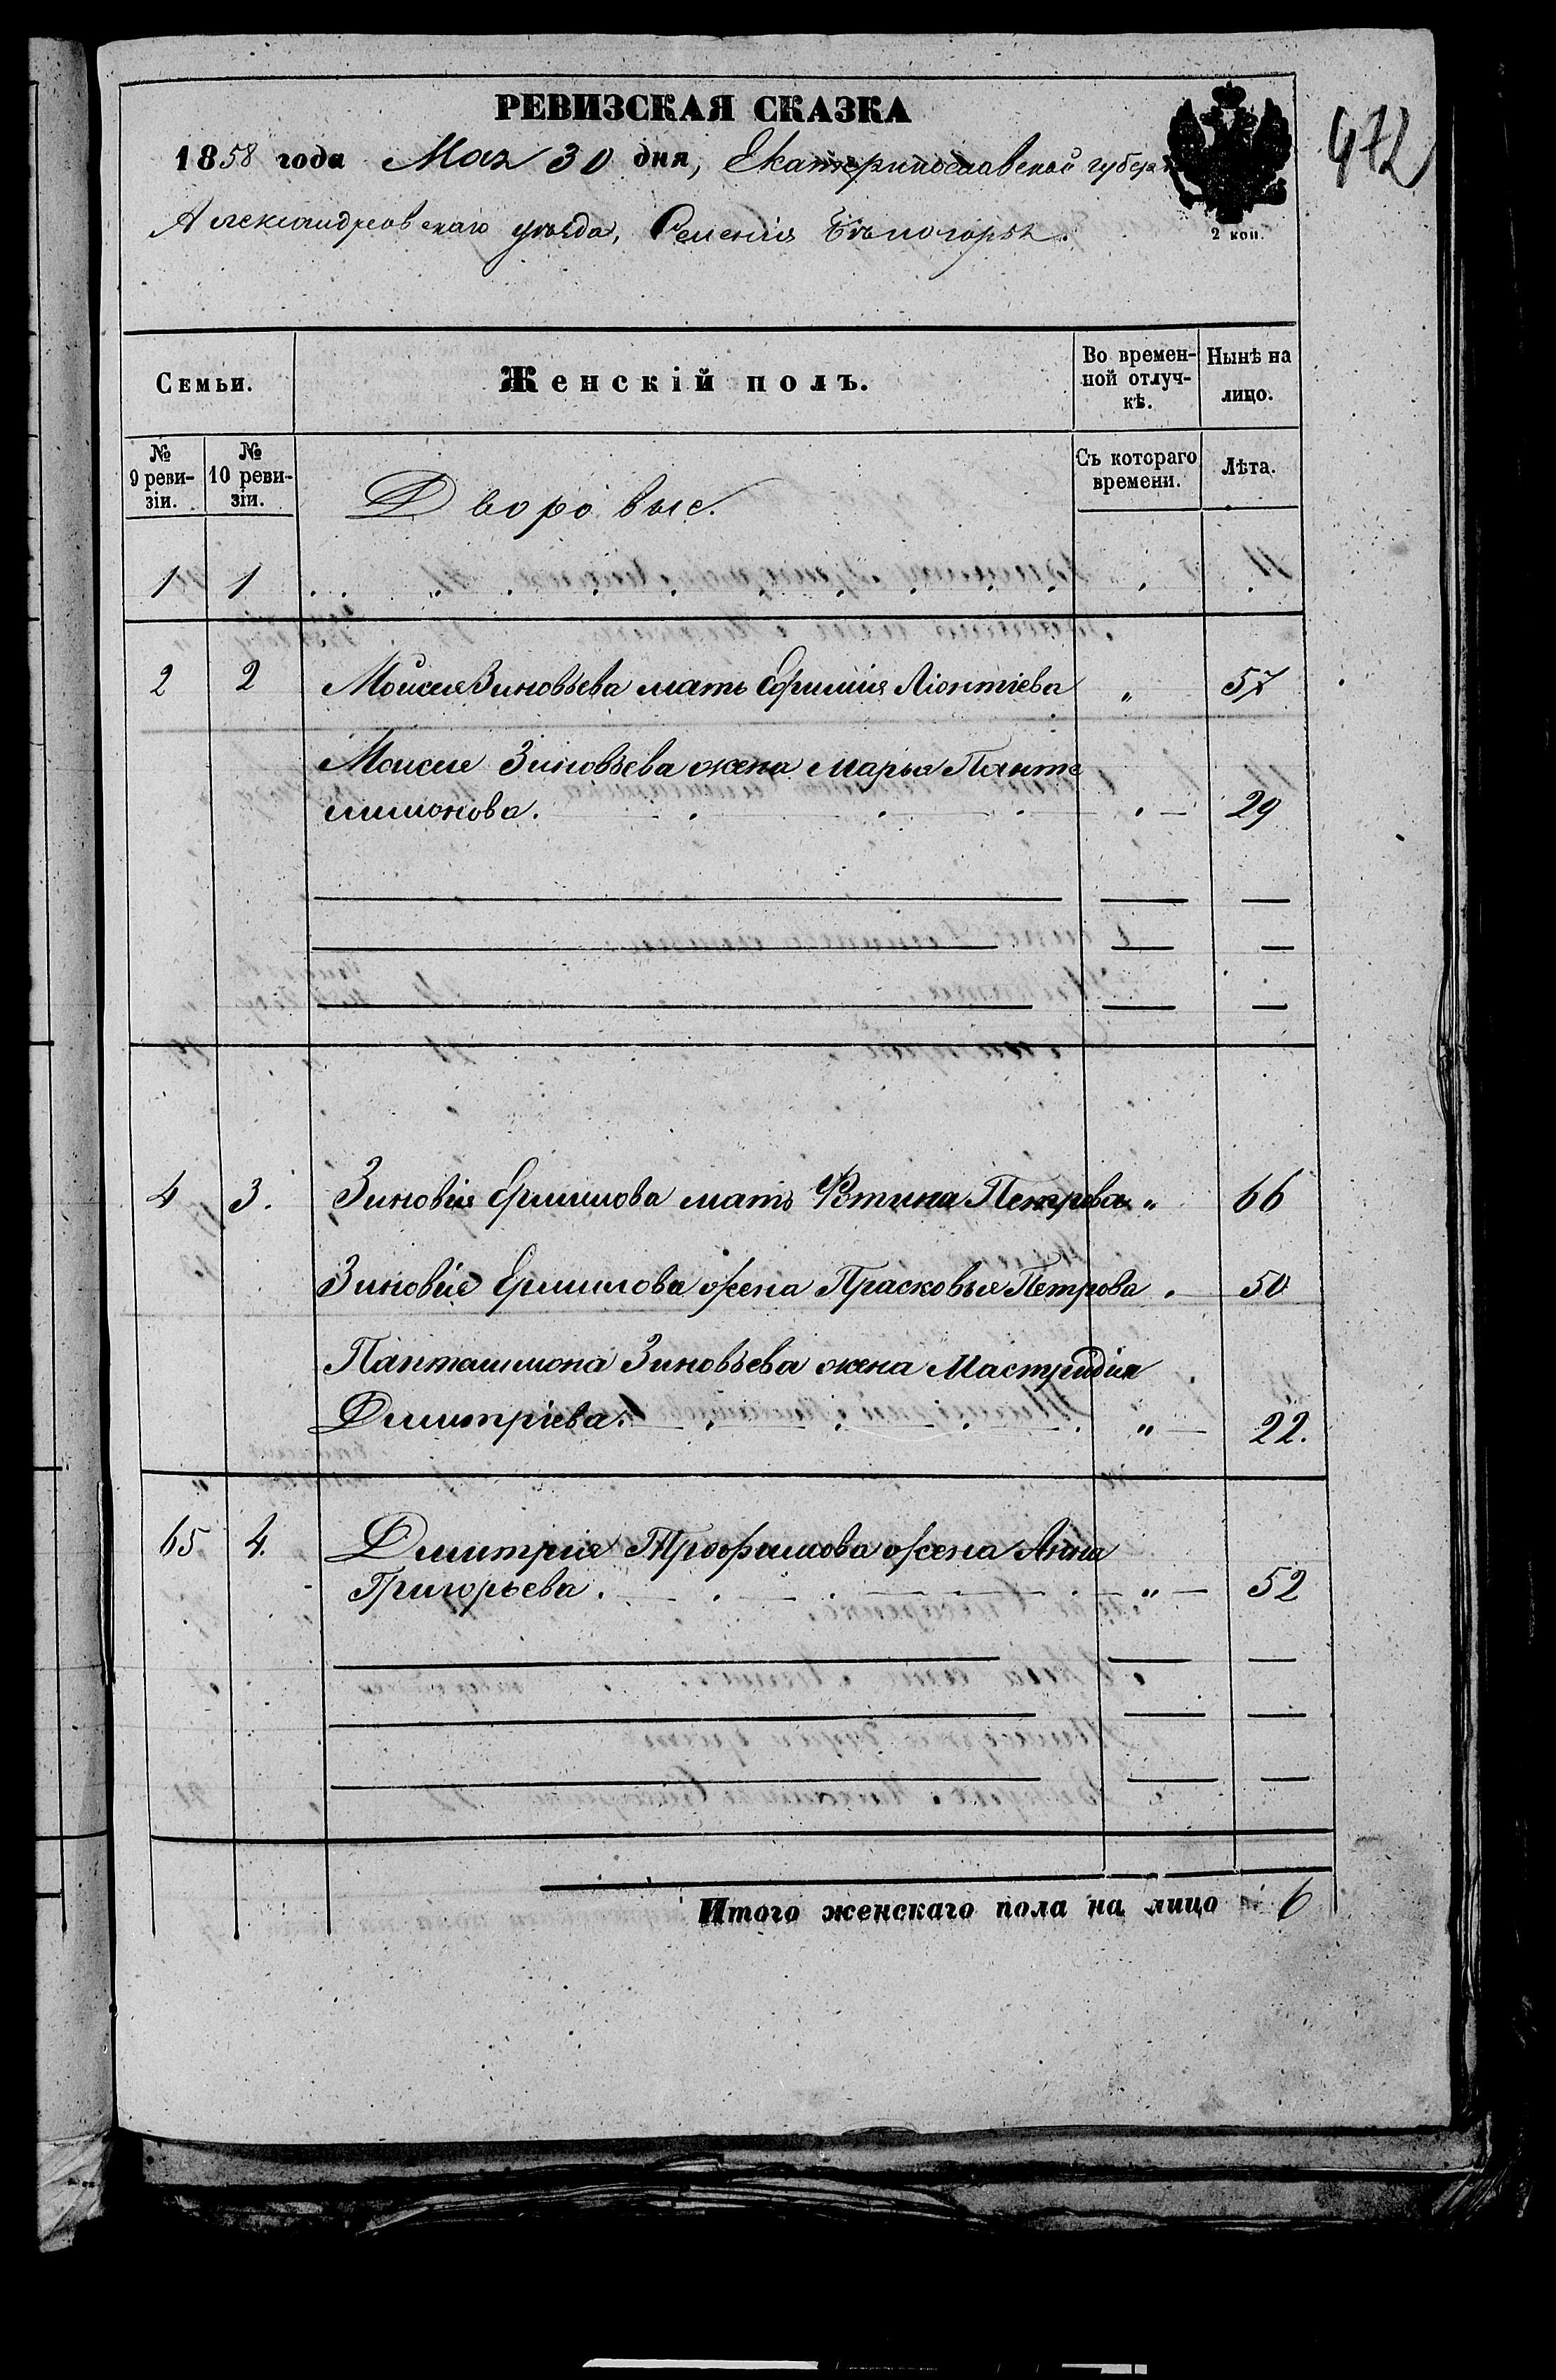 РЕВИЗСКАЯ СКАЗКА
472
1858 года Мая 30 дня, Екатеринославской губер
2 коп.
Александровскаго уѣзда, Селенія Бѣлогорья.
Семьи.
Женскій полъ.
Во времен-
ной отлуч-
кѣ.
Нынѣ на
лицо.
№
9 реви-
зіи.
№
10 реви-
зіи.
Съ котораго
времени.
Лѣта.
Дворовые.
1 1
2 2 Моисея Зиновьева мать Ефимия Лионтіева " 57
Моисея Зиновьева жена Марья Панте
лимонова. 29
4 3. Зиновія Ермилова мать Фотина Петрова " 66
Зиновія Ермилова жена Прасковья Петрова 50
Панталимона Зиновьева жена Мастридия
Димитріева. " 22.
65 4. Дмитрія Трофимова жена Анна
Григорьева. " 52
Итого женскаго пола на лицо 6